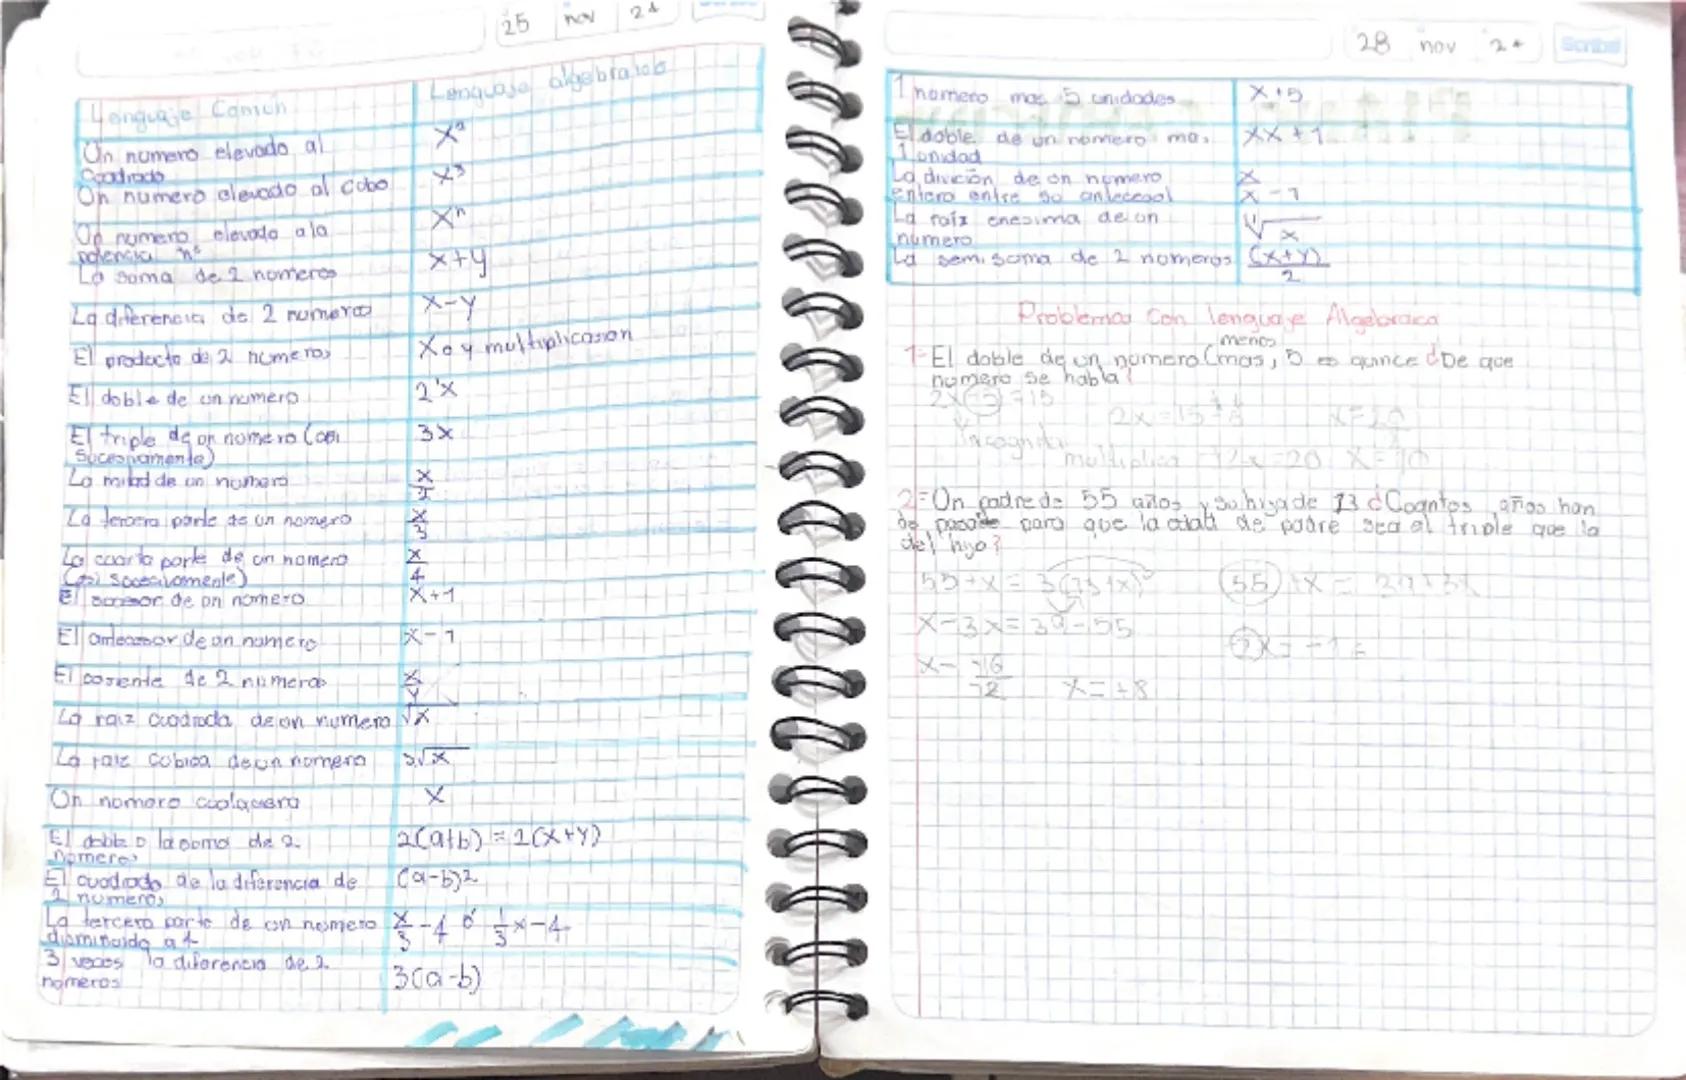 25 nov 24
Lenguaje Comun Lenguaje algebraico
Un numero elevado al X²
Cuadrado
Un numero elevado al cubo X³
Un numero elevado a la Xⁿ
potencia n
La suma de 2 numeros x+y
La diferencia de 2 numeros x-y
El producto de 2 numeros X o y multiplicasion
El doble de un numero 2'x
El triple de un numero (asi 3x
Sucesivamente)
La mitad de un numero x/2
La tercera parte de un numero x/3
La cuarta parte de un numero x/4
(asi sucesivamente)
El sucesor de un numero x+1
El antecesor de un numero x-1
El cosiente de 2 numeros x/y
La raiz cuadrada de un numero √x
La raiz cubica de un numero 3√x
Un numero cualquiera x
El doble o la soma de 2 2(a+b) = 2(x+y)
numeros
El cuadrado de la diferencia de (a-b)2
2 numeros
La tercera parte de un numero x/3 -4 ó 1/3 x-4
disminuida a 4
3 veces la diferencia de 2 3(a-b)
numeros
28 nov 24 Scribe
1 numero mas 5 unidades x+5
El doble de un numero mas xx+1
1 unidad
La divición de un numero x
entero entre su antecesol x-1
La raiz enesima de un ⁿ√x
numero
La semi suma de 2 numeros (x+y)/2
Problemas Con lenguaje Algebraica
menos
1- El doble de un numero (mas, 5 es quince ¿De que
numero se habla?
2x(-5)=15 2x=15+5 x=20/2
Yncognita multiplica 2x=20 x=10
2- Un padre de 55 años y su hijo de 13 ¿Cuantos años han
de pasade para que la edad de padre sea al triple que la
del hijo?
55+x = 3(13+x) (55)+x = 39+3x
x-3x=39-55 (2)x=-16
x- -16/-2 x=+8